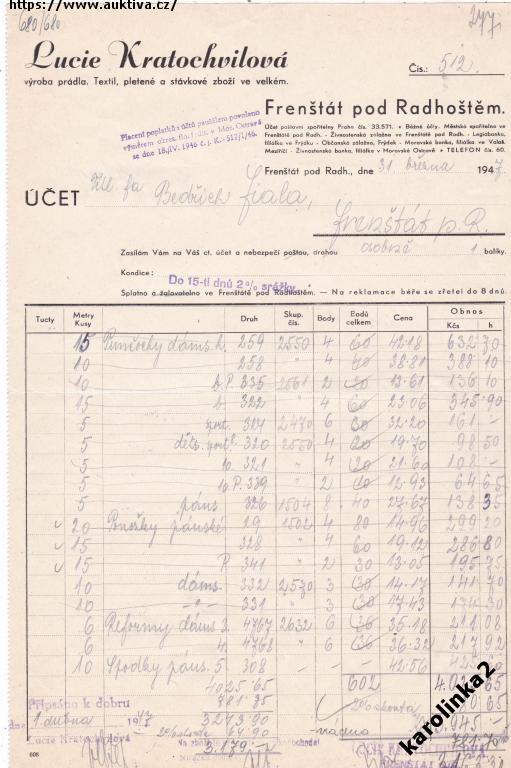 https://www.auktiva.cz/
680/680
277
Lucie Kratochvilová
výroba prádla. Textil, pletené a stávkové zboží ve velkém.
Čís.: 512.
Placení poplatků z účtů paušálem povoleno
se dne 18./IV. 1946 č. j. K.-512/1/46.
Frenštát pod Radhoštěm.
Účet poštovní spořitelny Praha čís. 33.571. • Běžné účty. Městská spořitelna ve
Frenštátě p. Radh. - Živnostenská záložna ve Frenštátě p. Radh. - Legiobanka,
filiálka ve Frýdku. - Občanská záložna, Frýdek - Moravská banka, filiálka ve Valaš.
Meziříčí - Živnostenská banka, filiálka v Moravské Ostravě • TELEFON čís. 60.
Frenštát pod Radh., dne 31. března 1947
ÚČET
Ctěl. fa Bedřich Fiala,
Frenštát p. R.
Zasílám Vám na Váš ct. účet a nebezpečí poštou, drahou dobírku 1 balíky.
Kondice: Do 15-ti dnů 2% srážky
Splatno a žalovatelno ve Frenštátě pod Radhoštěm. — Na reklamace béře se zřetel do 8 dnů.
Tucty Metry Kusy Druh Skup. čís. Body Bodů celkem Cena Obnos Kčs h
15 Punčochy dáms. h. 259 2550 4 60 42·18 632 70
10 258 " 4 40 38·81 388 10
10 b.P. 335 2561 2 20 13·61 136 10
15 b. 322 " 4 60 23·06 345 90
5 sport. 324 2470 6 30 32·20 161 -
5 děts. sport. 320 2550 4 20 19·70 98 50
5 " 321 " 4 20 21·60 108 -
5 P. 339 " 2 10 12·93 64 65
5 páns. 326 1504 8 40 27·67 138 35
20 Ponožky pánské 29 1502 4 80 14·96 299 20
15 328 " 4 60 19·12 286 80
15 P. 341 " 2 30 13·05 195 75
10 dáms. 332 2570 3 30 14·17 141 70
10 -"- 331 " 3 30 17·43 174 30
6 Reformy dáms. 3. 4767 2632 6 36 35·18 211 08
6 4. 4768 " 6 36 36·32 217 92
10 Spodky páns. 5 308 - 42·56
4025·65 602
781·75 2% skonta
Připsáno k dobru
dne 1. dubna 1947
3243·90 945
Lucie Kratochvilová
2% skonto 64·90
3.179.-
608
karolinka2